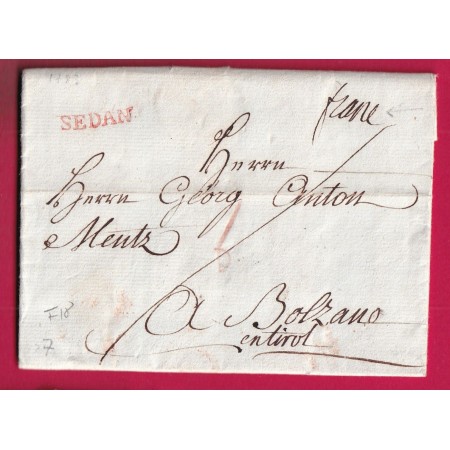 SEDAN
franc
Herrn
Herrn Georg Anton
Mentz
A Bolzano
en tirol
F18
7